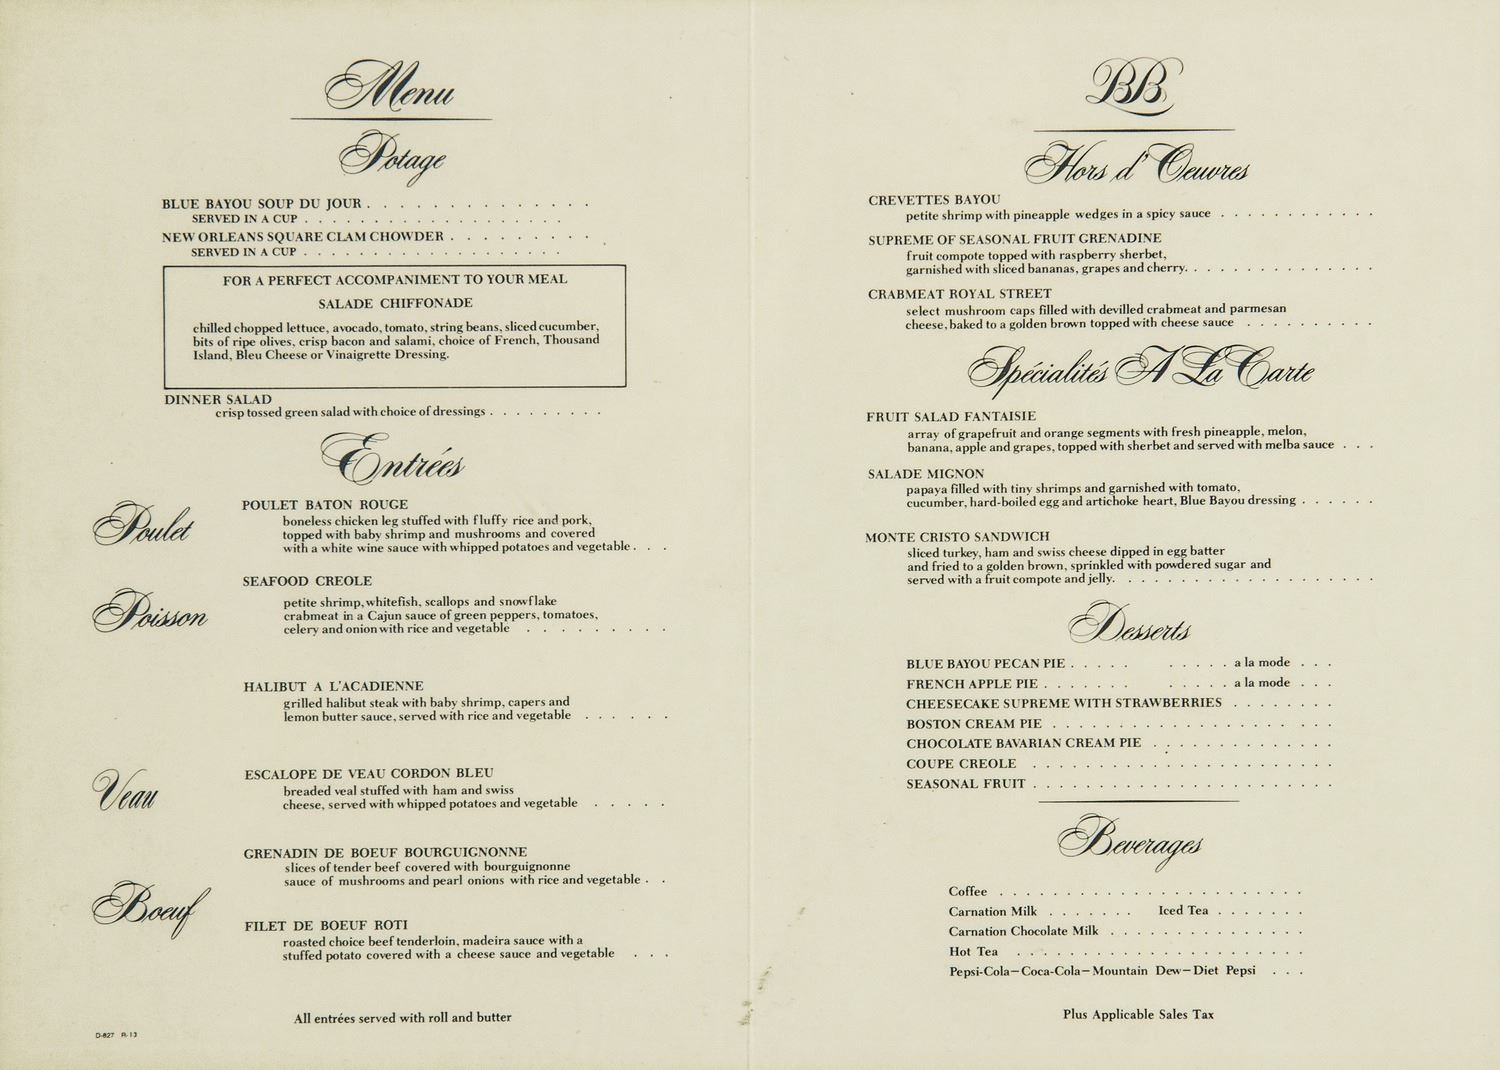 Menu
Potage
BLUE BAYOU SOUP DU JOUR . . . . . . . . . . . . . .
SERVED IN A CUP . . . . . . . . . . . . . . . . . .
NEW ORLEANS SQUARE CLAM CHOWDER . . . . . . . . .
SERVED IN A CUP . . . . . . . . . . . . . . . . . .
FOR A PERFECT ACCOMPANIMENT TO YOUR MEAL
SALADE CHIFFONADE
chilled chopped lettuce, avocado, tomato, string beans, sliced cucumber,
bits of ripe olives, crisp bacon and salami, choice of French, Thousand
Island, Bleu Cheese or Vinaigrette Dressing.
DINNER SALAD
crisp tossed green salad with choice of dressings . . . . . . . . .
Entrées
Poulet
POULET BATON ROUGE
boneless chicken leg stuffed with fluffy rice and pork,
topped with baby shrimp and mushrooms and covered
with a white wine sauce with whipped potatoes and vegetable . . .
Poisson
SEAFOOD CREOLE
petite shrimp, whitefish, scallops and snowflake
crabmeat in a Cajun sauce of green peppers, tomatoes,
celery and onion with rice and vegetable . . . . . . . . .
HALIBUT A L'ACADIENNE
grilled halibut steak with baby shrimp, capers and
lemon butter sauce, served with rice and vegetable . . . . . .
Veau
ESCALOPE DE VEAU CORDON BLEU
breaded veal stuffed with ham and swiss
cheese, served with whipped potatoes and vegetable . . . . .
Boeuf
GRENADIN DE BOEUF BOURGUIGNONNE
slices of tender beef covered with bourguignonne
sauce of mushrooms and pearl onions with rice and vegetable . .
FILET DE BOEUF ROTI
roasted choice beef tenderloin, madeira sauce with a
stuffed potato covered with a cheese sauce and vegetable . . .
All entrées served with roll and butter
D-827 R-13
BB
Hors d'Oeuvres
CREVETTES BAYOU
petite shrimp with pineapple wedges in a spicy sauce . . . . . . . . . .
SUPREME OF SEASONAL FRUIT GRENADINE
fruit compote topped with raspberry sherbet,
garnished with sliced bananas, grapes and cherry. . . . . . . . . . . . .
CRABMEAT ROYAL STREET
select mushroom caps filled with devilled crabmeat and parmesan
cheese, baked to a golden brown topped with cheese sauce . . . . . . . .
Spécialités A La Carte
FRUIT SALAD FANTAISIE
array of grapefruit and orange segments with fresh pineapple, melon,
banana, apple and grapes, topped with sherbet and served with melba sauce . . .
SALADE MIGNON
papaya filled with tiny shrimps and garnished with tomato,
cucumber, hard-boiled egg and artichoke heart, Blue Bayou dressing . . . . . .
MONTE CRISTO SANDWICH
sliced turkey, ham and swiss cheese dipped in egg batter
and fried to a golden brown, sprinkled with powdered sugar and
served with a fruit compote and jelly. . . . . . . . . . . . . . . . .
Desserts
BLUE BAYOU PECAN PIE . . . . . . . . . . a la mode . . .
FRENCH APPLE PIE . . . . . . . . . . . . a la mode . . .
CHEESECAKE SUPREME WITH STRAWBERRIES . . . . . . . .
BOSTON CREAM PIE . . . . . . . . . . . . . . . . . . . .
CHOCOLATE BAVARIAN CREAM PIE . . . . . . . . . . . . .
COUPE CREOLE . . . . . . . . . . . . . . . . . . . . . .
SEASONAL FRUIT . . . . . . . . . . . . . . . . . . . . . .
Beverages
Coffee . . . . . . . . . . . . . . . . . . . . . . .
Carnation Milk . . . . . . . Iced Tea . . . . . . .
Carnation Chocolate Milk . . . . . . . . . . . . . . .
Hot Tea . . . . . . . . . . . . . . . . . . . . . .
Pepsi-Cola—Coca-Cola—Mountain Dew—Diet Pepsi . . .
Plus Applicable Sales Tax